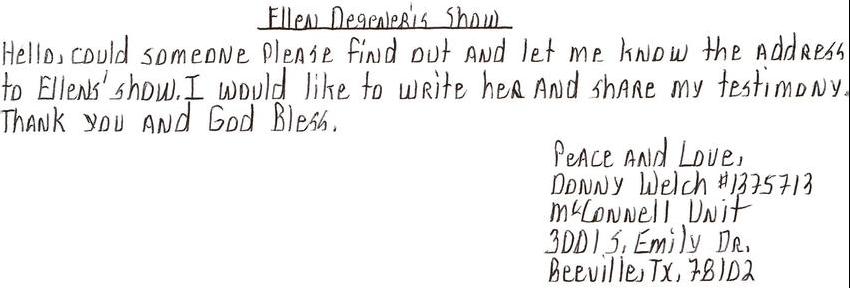 Ellen Degeneris Show
Hello, could someone please find out and let me know the address
to Ellens' show. I would like to write her and share my testimony.
Thank you and God Bless.
Peace and Love,
Donny Welch #1375713
McConnell Unit
3001 S. Emily Dr.
Beeville, Tx, 78102